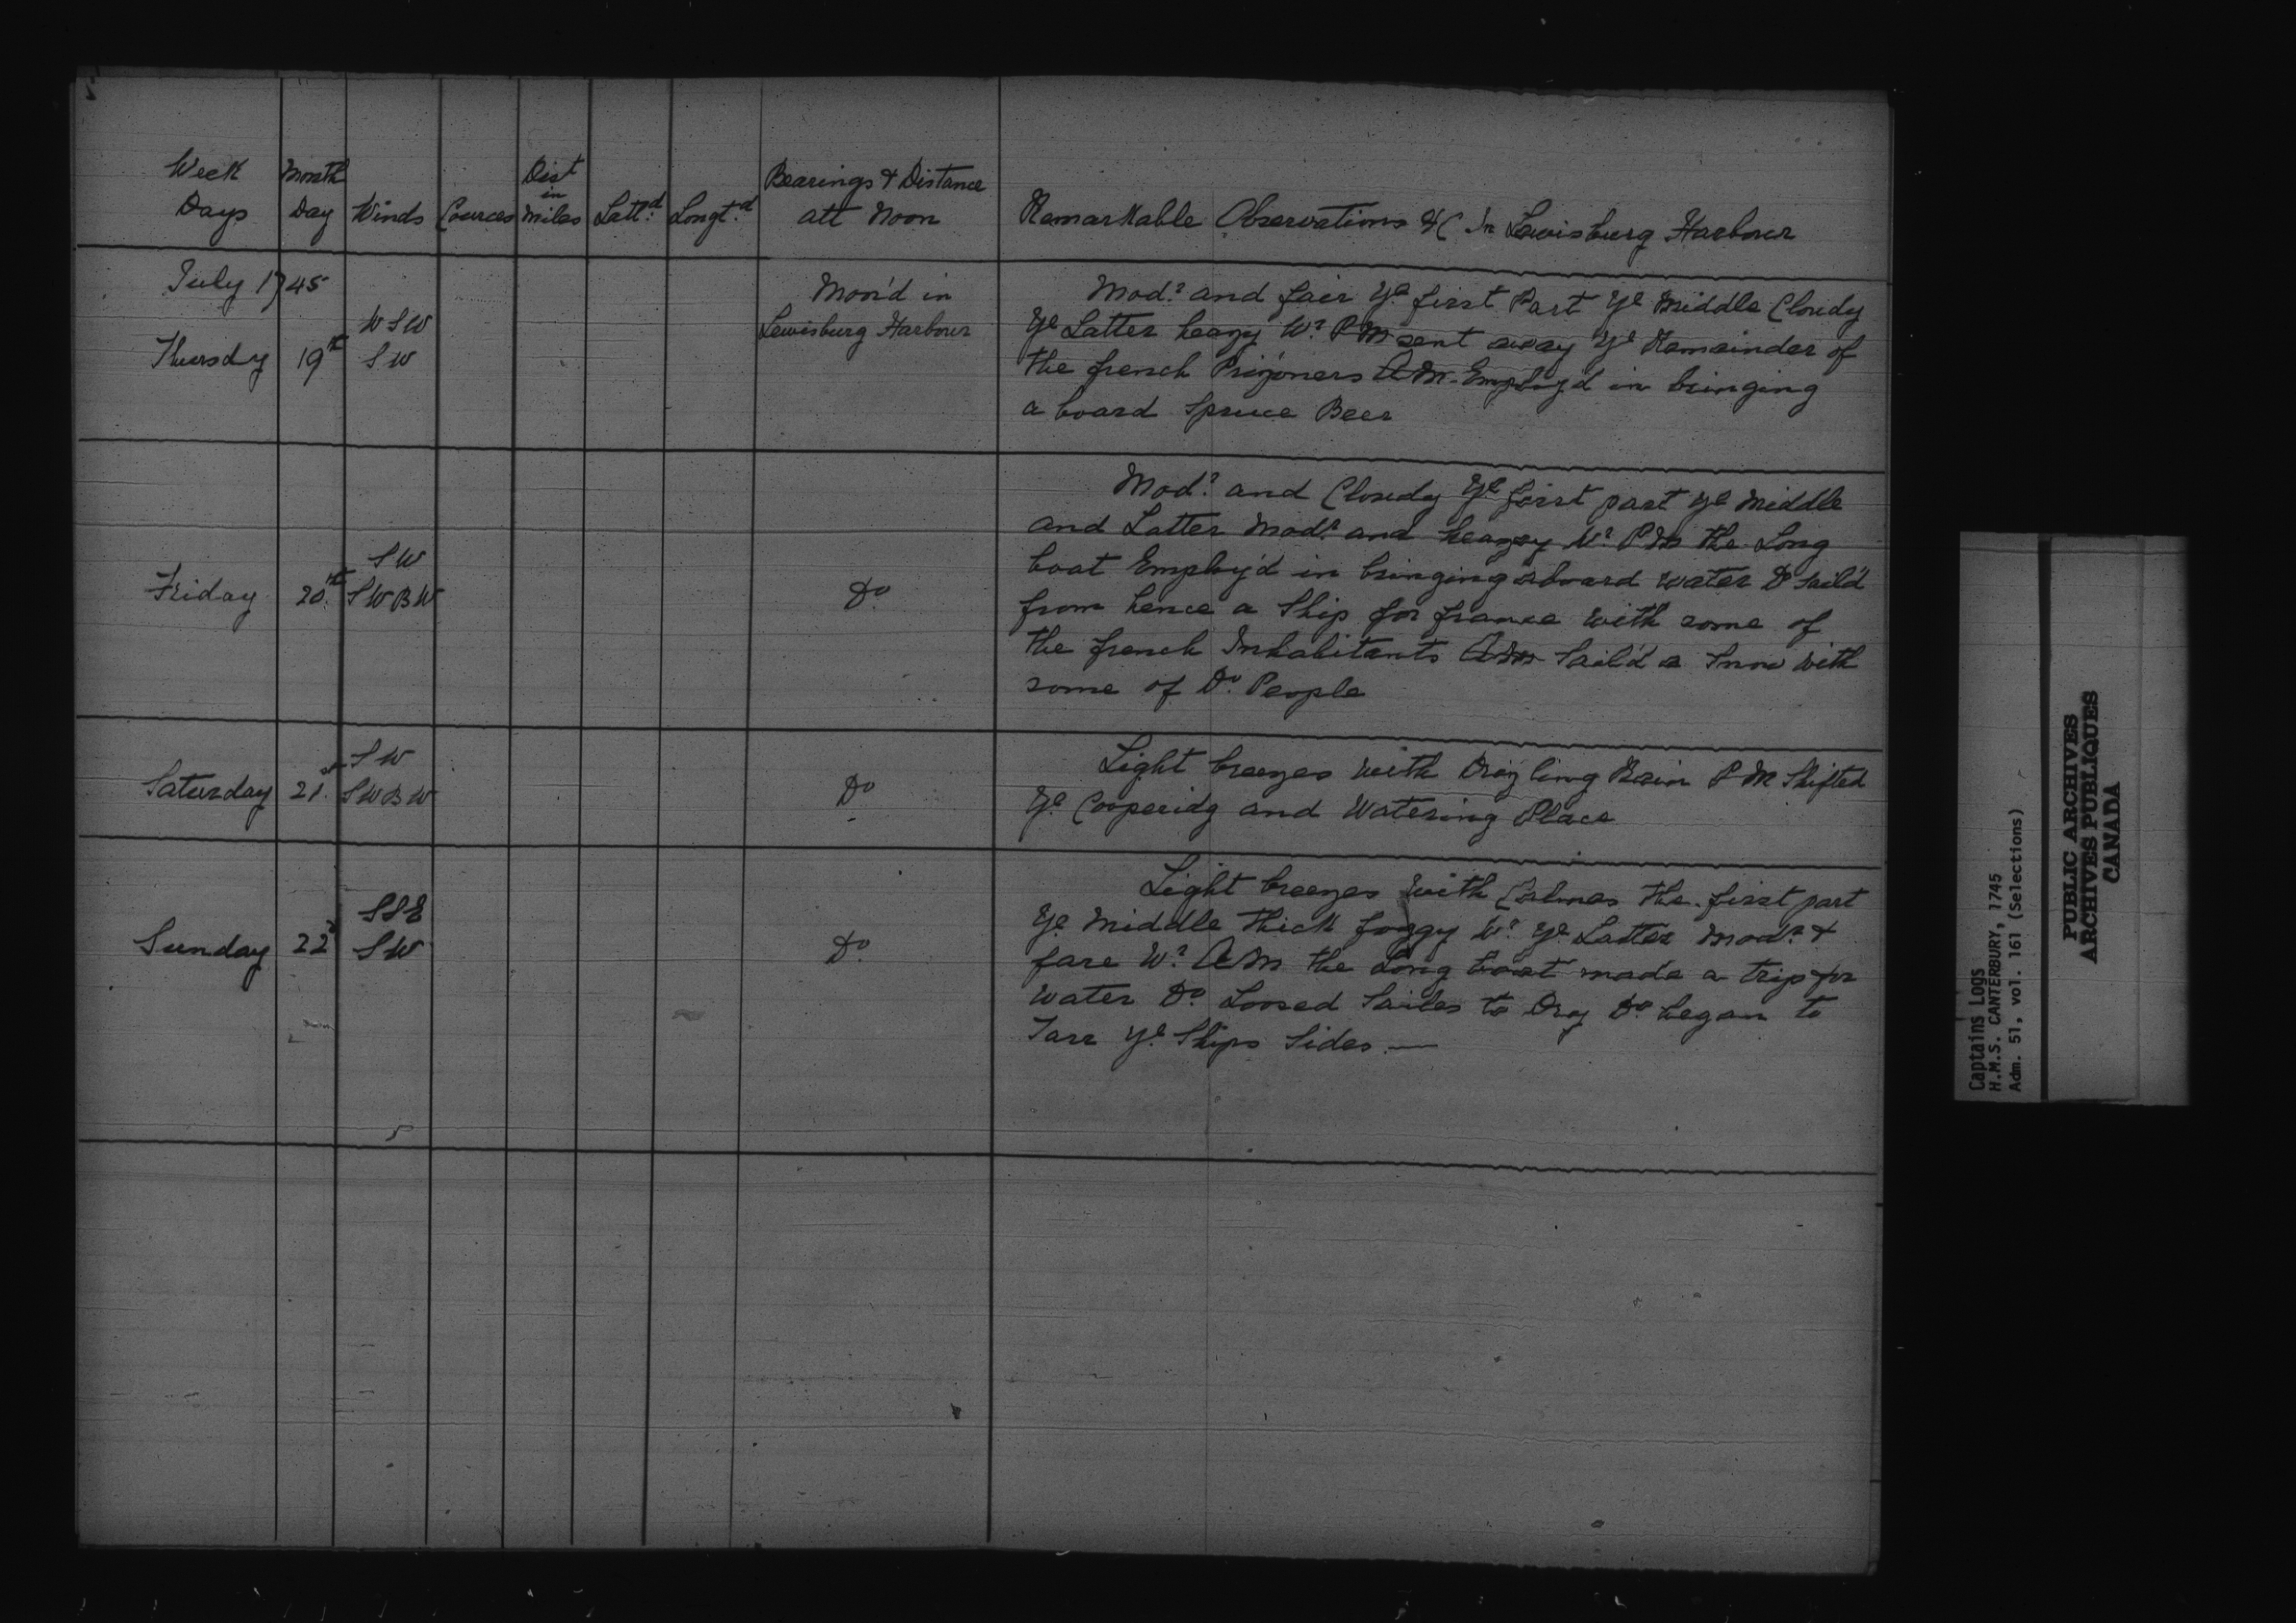 Week Days
Month Day
Winds
Cources
Dist in miles
Latt.d
Longt.d
Bearings & Distance att Noon
Remarkable Observations &C In Lewisburg Harbour
July 1745
Thursdy 19th
WSW
SW
Moor'd in
Lewisburg Harbour
Mod.r and fair Ye first Part Ye Middle Cloudy
Ye Latter heazy Wr PM sent away Ye Remainder of
the french Prizoners AM Employ'd in bringing
a board Spruce Beer
Friday 20th.
SW
SWBW
Do
Mod.r and Cloudy Ye first part Ye Middle
and Latter Mod.r and heazey Wr PM the Long
boat Employ'd in bringing aboard water Do Sail'd
from hence a Ship for france with some of
the french Inhabitants AM Sail'd a Snow with
some of Do People
Saturday 21st.
SW
SWBW
Do
Light breezes with Drizling Rain PM Shifted
Ye Cooperidg and Watering Place
Sunday 22d
SSE
SW
Do
Light breezes with Calmes the first part
Ye Middle thick foggy Wr Ye Latter Mod.r &
fare Wr AM the Long boat made a trip for
water Do Loosed Sailes to Dry Do began to
Tarr Ye Ships Sides —
Captains Logs
H.M.S. CANTERBURY, 1745
Adm. 51, vol. 161 (Selections)
PUBLIC ARCHIVES
ARCHIVES PUBLIQUES
CANADA